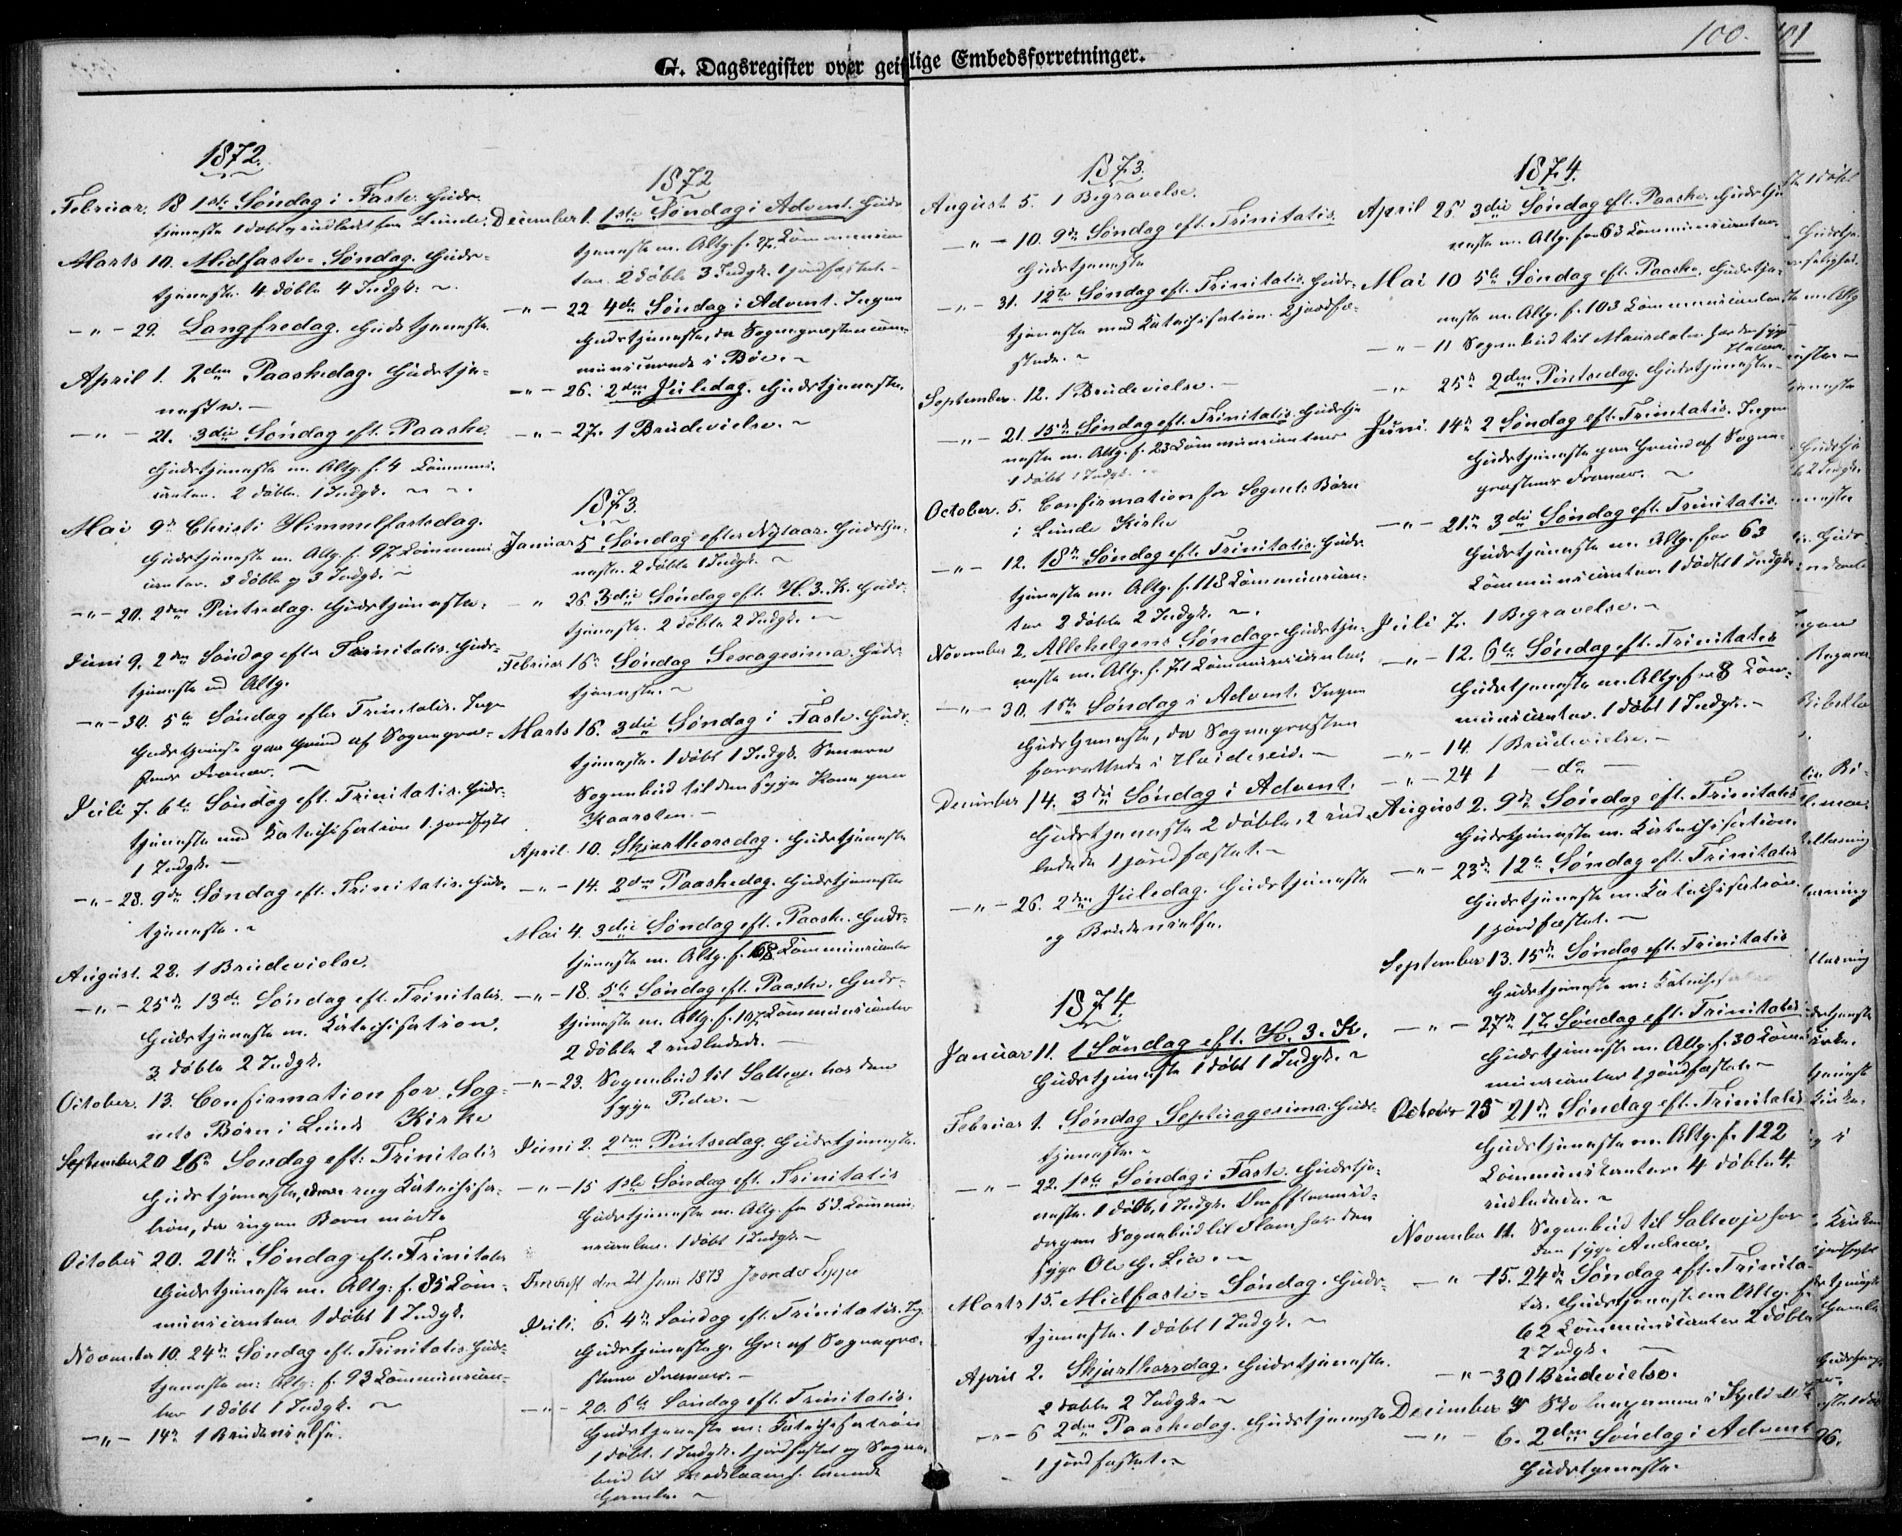 100.
101
G. Dagsregister over geistlige Embedsforretninger.
1872.
Februar. 18 1ste Søndag i Faste. Guds-
tjeneste 1 døbt
Marts 10. Midfaste-Søndag. Guds-
tjeneste. 4 døbte 4 Indgk.
-"- 29. Langfredag. Gudstjeneste.
April 1. 2den Paaskedag. Gudstje-
neste.
-"- 21. 3die Søndag eft. Paaske.
Gudstjeneste m. Altg. f. 4 Kommuni-
canter. 2 døbte. 1 Indgk.
Mai 9de Christi Himmelfartsdag.
Gudstjeneste m. Altg. f. 97 Kommuni-
canter. 3 døbte og 3 Indgk.
-"- 20. 2den Pintsedag. Gudstjeneste.
Juni 9. 2den Søndag efter Trinitatis. Guds-
tjeneste m Altg.
-"- 30. 5te Søndag efter Trinitatis. Ingen
Gudstjeneste paa Grund af Sognepræ-
stens Fravær.
Juli 7. 6te Søndag eft. Trinitatis. Guds-
tjeneste med Katechisation 1. jordfæstet
1 Indgk.
-"- 28. 9de Søndag eft. Trinitatis. Guds-
tjeneste.
August. 22. 1 Brudevielse.
-"- 25de 13de Søndag eft. Trinitatis.
Gudstjeneste m. Katechisation.
3 døbte 2 Indgk.
October. 13. Confirmation for Sog-
nets Børn i Lunde Kirke
September 20 16de Søndag eft: Trinitatis
Gudstjeneste, Katechisa-
tion, da ingen Børn mødte
October 20. 21de Søndag eft. Trinitatis
Gudstjeneste m. Altg: f. 85 Kom-
municanter 1 døbt 1 Indgk.
November 10. 24de Søndag eft. Trinitatis. Guds-
tjeneste m: Altg: f. 93 Kommunican-
ter 1 døbt 1 Indgk.
-"- 14de 1 Brudevielse.
1872
December 1. 1ste Søndag i Advent. Guds
tjeneste m. Altg. f. 27 Kommunican
ter. 2 døbte 3 Indgk. 1 jordfæstet.
-"- 22 4de Søndag i Advent. Ingen
Gudstjeneste, da Sognepræsten com-
municerede i Bøe.
-"- 26. 2den Juledag. Gudstjeneste.
-"- 27. 1 Brudevielse.
1873.
Januar 5 Søndag efter Nytaar. Gudstje-
neste. 2 døbte 1 Indgk.
" 26. 3die Søndag eft. H. 3. K. Guds-
tjeneste. 2 døbte 2 Indgk.
Februar 16de Søndag Sexagesima. Guds-
tjeneste.
Marts 16. 3die Søndag i Faste. Guds-
tjeneste. 1 døbt 1 Indgk. Samme
Sognebud til den syge Kone paa
Kaarsten.
April. 10. Skjærthorsdag. Gudstjeneste
-"- 14. 2den Paaskedag. Gudstjeneste
Mai 4. 3die Søndag eft. Paaske. Guds-
tjeneste m. Altg. f. 68 Kommunicanter
-"- 18. 5te Søndag eft. Paaske. Guds-
tjeneste m. Altg. f. 107 Kommunicanter
2 døbte 2 indledede.
-"- 23. Sognebud til hos den
syge Peder.
Juni 2. 2den Pintsedag. Gudstjeneste.
-"- 15 1ste Søndag eft. Trinitatis
Gudstjeneste m. Altg. for 53. Kommu-
nicanter. 1 døbt 1 Indgk.
den 21 Juni 1873
Juli. 6. 4de Søndag eft. Trinitatis. Ing.
Gudstjeneste p. Gr: af Sognepræ-
stens Fravær.
-"- 20. 6te Søndag eft. Trinitatis.
Gudstjeneste m: Katechisation
1 døbt. 1 Indgk. 1 jordfæstet og Sogne-
bud til
Gamle.
1873.
August 5. 1 Begravelse.
-"- 10. 9de Søndag eft. Trinitatis.
Gudstjeneste
-"- 31. 12te Søndag eft. Trinitatis. Guds-
tjeneste med Katechisation. 2 jordfæ-
stede.
September. 12. 1 Brudevielse.
-"- 21. 15de Søndag eft. Trinitatis. Gudstje
neste m. Altg. f. 23 Kommunicanter
1 døbt 1 Indgk.
October. 5. Confirmation for Sognets Børn
i Lunde Kirke
-"- 12. 18de Søndag eft. Trinitatis. Guds-
tjeneste m. Altg. f. 118 Kommunican-
ter 2 døbte 2 Indgk.
November 2. Allehelgens Søndag. Gudstje-
neste m. Altg. f. 71 Kommunicanter.
-"- 30. 1ste Søndag i Advent. Ingen
Gudstjeneste, da Sognepræsten
forrettede i
December 14. 3die Søndag i Advent.
Gudstjeneste 2 døbte, 2 ind-
ledede 1 jordfæstet.
-"- 26. 2den Juledag. Gudstjeneste
og Brudevielse.
1874.
Januar 11. 1 Søndag eft. H. 3. K.
Gudstjeneste 1 døbt 1 Indgk.
Februar 1. Søndag Septuagesima. Guds-
tjeneste.
-"- 22. 1ste Søndag i Faste. Gudstje-
neste. 1 døbt, 1 Indgk. Om Eftermid-
dagen Sognebud til hos den
syge
Marts 15. Midfaste-Søndag. Guds-
tjeneste. 1 døbt 1 Indgk.
April 2. Skjærthorsdag. Gudstjeneste.
2 døbte 2 Indgk.
-"- 6 2den Paaskedag. Gudstjeneste
1 jordfæstet.
1874.
April 26 3die Søndag eft. Paaske. Gudstje-
neste m. Altg. for 63 Kommunicanter.
Mai 10 5te Søndag eft. Paaske. Gudstje-
neste m. Altg. f. 103 Kommunicanter
-"- 11 Sognebud til hos den syge
-"- 25de 2den Pintsedag. Gudstjeneste.
Juni. 14de 2 Søndag eft. Trinitatis. Ingen
Gudstjeneste paa Grund af Sogne-
præstens Fravær.
-"- 21de 3die Søndag eft. Trinitatis.
Gudstjeneste m. Altg. for 63
Kommunicanter. 1 døbt 1 Indgk.
Juli 7. 1 Begravelse.
-"- 12. 6te Søndag eft. Trinitatis
Gudstjeneste m. Altg. for 8 Kom-
municanter. 1 døbt 1 Indgk.
-"- 14. 1 Brudevielse.
-"- 24 1 - do -
August 2. 9de Søndag eft. Trinitatis
Gudstjeneste m. Katechisation
-"- 23de 12te Søndag eft. Trinitatis
Gudstjeneste m. Katechisation.
1 jordfæstet.
September 13. 15de Søndag eft. Trinitatis
Gudstjeneste m: Katechisation
-"- 27de 17 Søndag eft. Trinitatis
Gudstjeneste m. Altg. f. 30 Kom-
municanter 1 jordfæstet.
October 25 21de Søndag eft. Trinitatis
Gudstjeneste m. Altg. f. 122
Kommunicanter. 4 døbte 4.
indledede.
November 11. Sognebud til hos
den syge Andrea.
-"- 15. 24de Søndag eft. Trinita-
tis. Gudstjeneste m Altg. f.
62 Kommunicanter 2 døbte
2 Indgk.
-"- 30 1 Brudevielse.
December 4
-"- 6. 2den Søndag i Advent
Gudstjeneste.